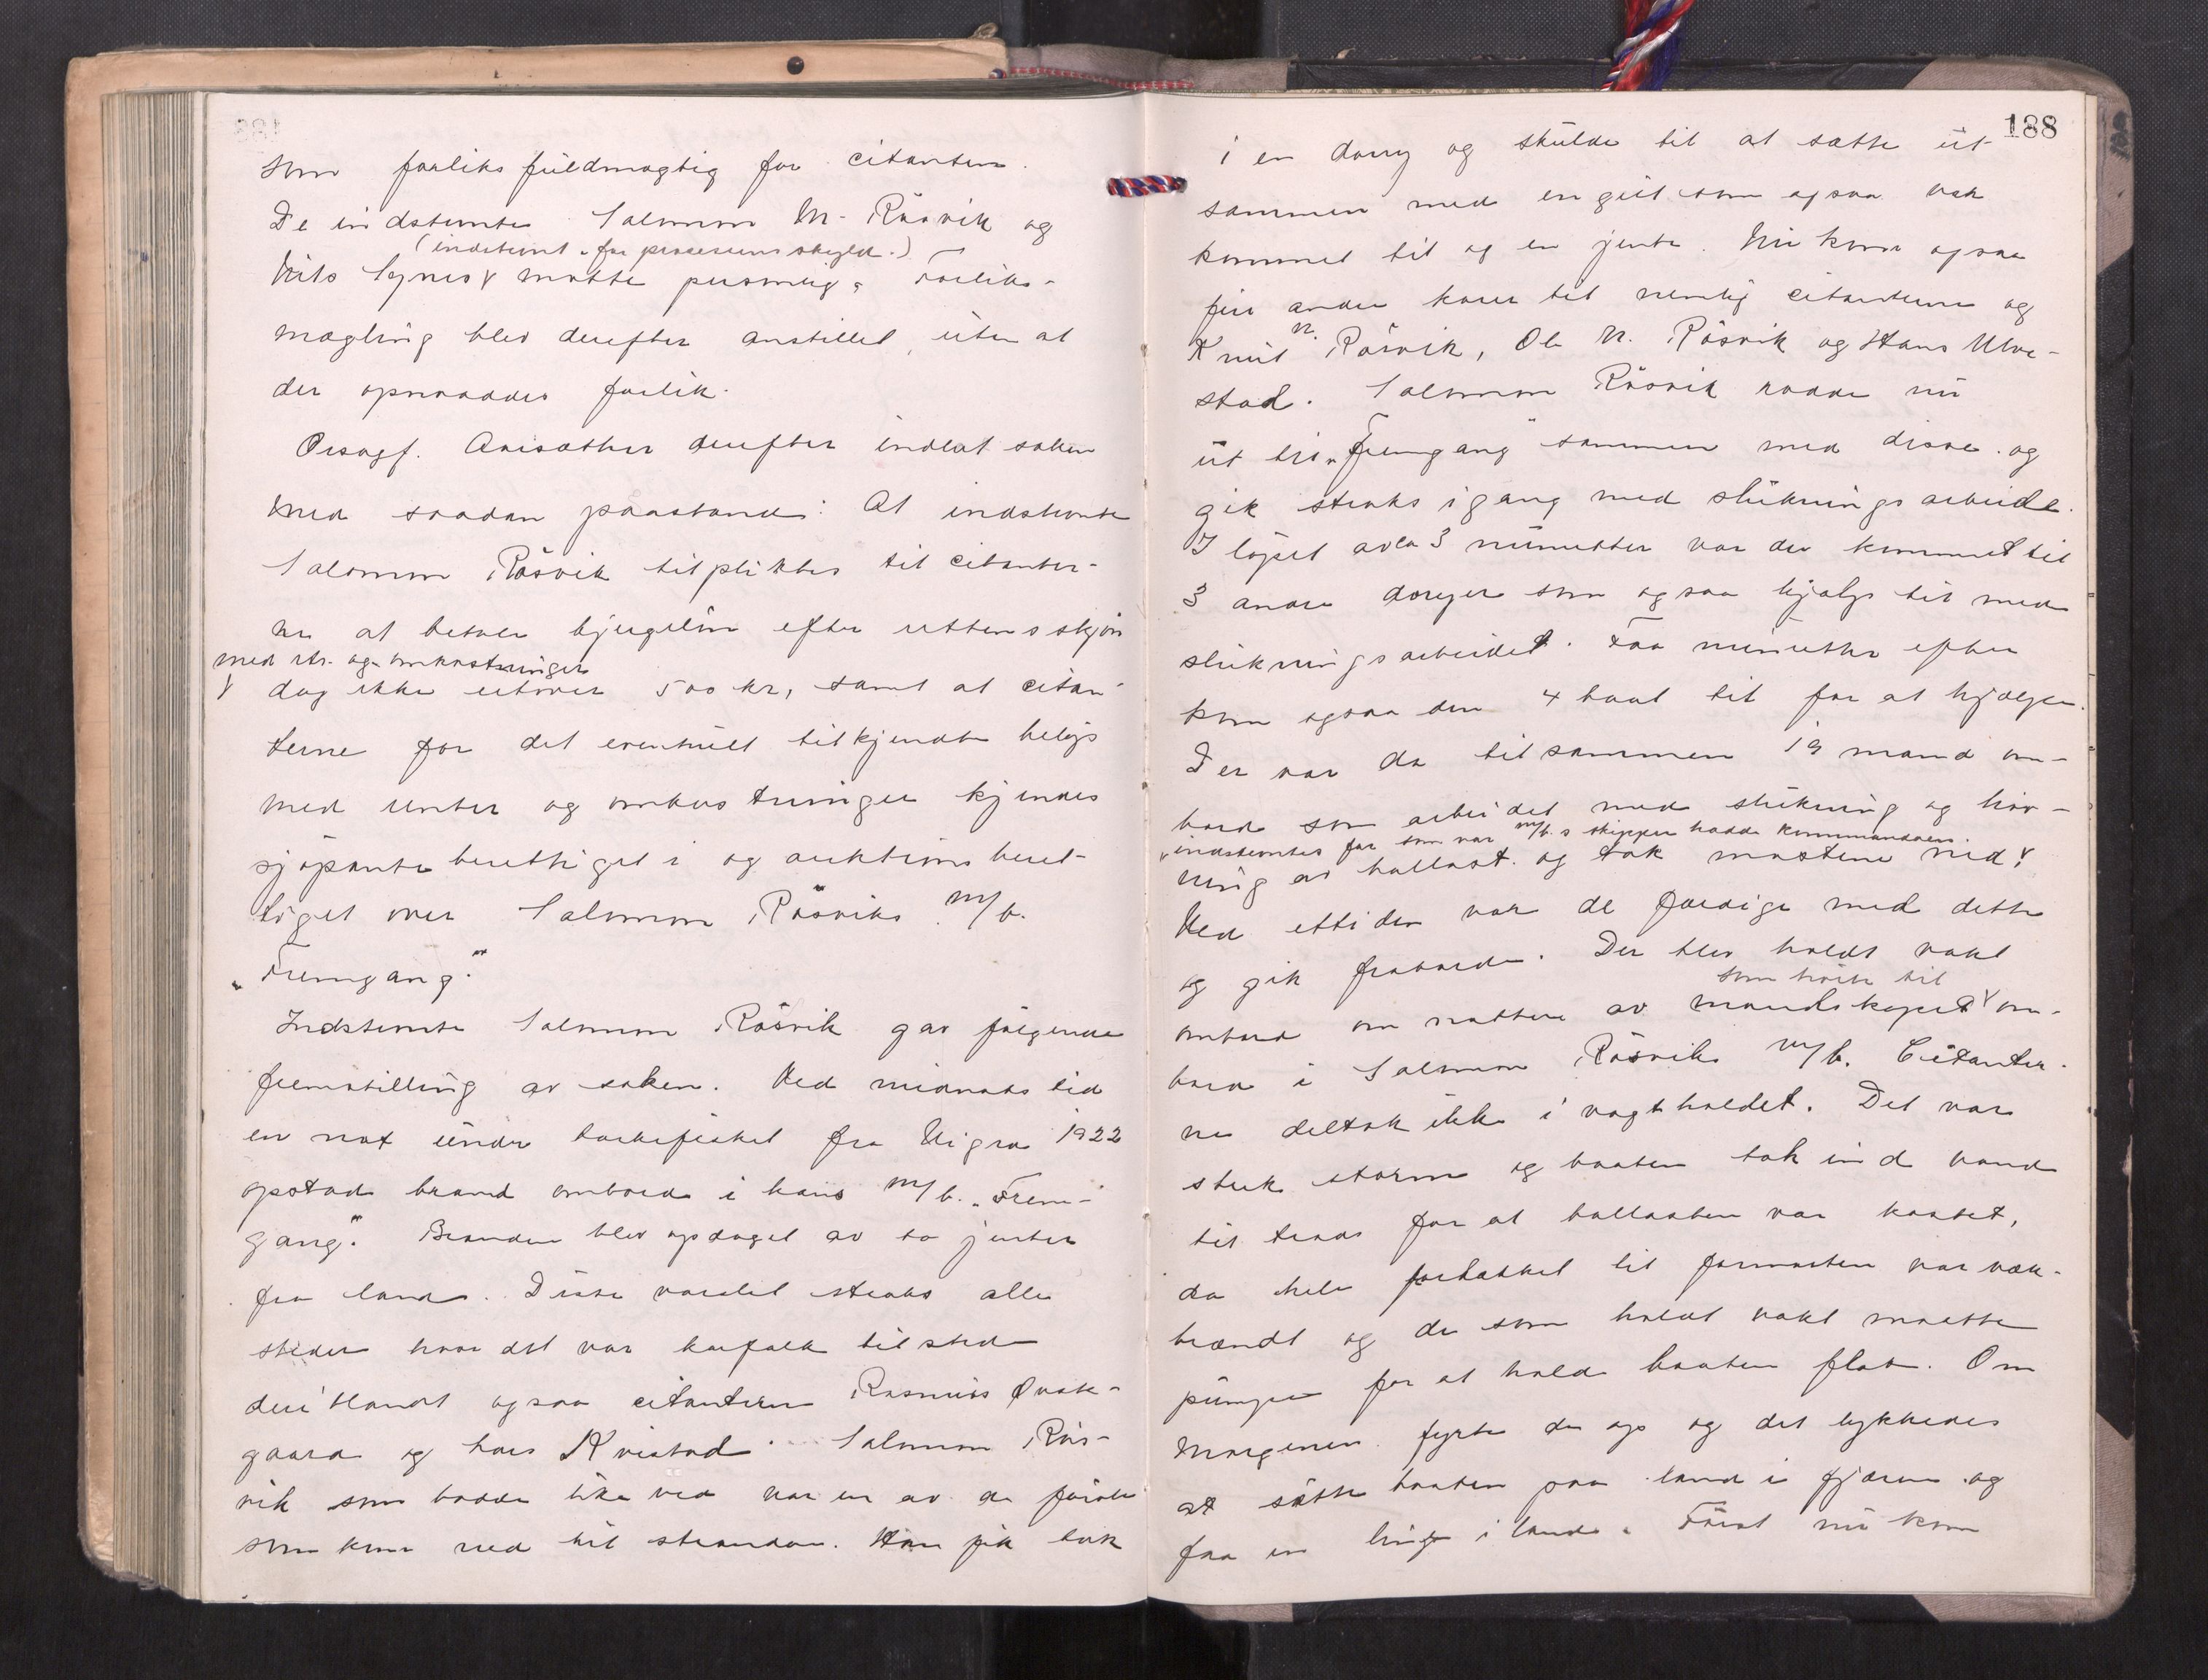 som forliksfuldmægtig for citanten.
De indstevnte Salomon M. Røsvik og
(indstevnt for processens skyld.)
Nils Synes ɣ møtte personlig. Forliks-
mægling blev derefter anstillet, uten at
der opnaaddes forlik.
Orsagf. Aarsæther derefter indlot saken
med saadan paastand: At indstevnte
Salomon Røsvik tilpliktes til citanter-
ne at betale bjergeløn efter rettens skjøn
med rtr. og omkostninger
ɣ dog ikke utover 500 kr, samt at citan-
terne for det eventuelt tilkjendte beløp
med renter og omkostninger kjendes
sjøpanteberettiget i og auktionsberet-
tiget over Salomon Røsviks m/b.
„Fremgang".
Indstevnte Salomon Røsvik gav følgende
fremstilling av saken. Ved midnatstid
en nat under torskefisket fra Vigra 1922
opstod brand ombord i hans m/b. „Frem-
gang". Branden blev opdaget av to jenter
fra land. Disse varslet straks alle
steder hvor det var karfolk tilstede
deriblandt ogsaa citanterne Rasmus Øvste-
gaard og Lars Kvistad. Salomon Røs-
vik som bodde like ved var en av de første
som kom ned til stranden. Han fik tak
188
i en dorry og skulde til at sætte ut
sammen med en gut som ogsaa var
kommet til og en jente. Nu kom ogsaa
fire andre karer til nemlig citanterne og
Knut N. Røsvik, Ole N. Røsvik og Hans Ulve-
stad. Salomon Røsvik rodde nu
ut til „Fremgang" sammen med disse og
gik straks igang med slukningsarbeide.
I løpet av ca 3 minutter var der kommet til
3 andre doryer som ogsaa hjalp til med
slukningsarbeidet. Faa minutter efter
kom ogsaa den 4 baat til for at hjælpe.
Der var da tilsammen 19 mand om-
bord som arbeidet med slukning og hiv-
indstevntes far som var m/b.s skipper hadde kommandoen.
ning av ballast og tok mastene ned ɣ.
Ved ettiden var de færdige med dette
og gik fraborde. Der blev holdt vakt
som hørte til
ombord om natten av mandskapet ɣ om-
bord i Salomon Røsviks m/b. Citanter-
ne deltok ikke i vagtholdet. Det var
sterk storm og baaten tok ind vand
til trods for at ballasten var kastet,
da hele fordækket til formasten var væk-
brændt og de som holdt vakt maatte
pumpe for at holde baaten flot. Om
morgenen fyrte de op og det lykkedes
at sætte baaten paa land i fjæren og
faa en line i land. Først nu kom